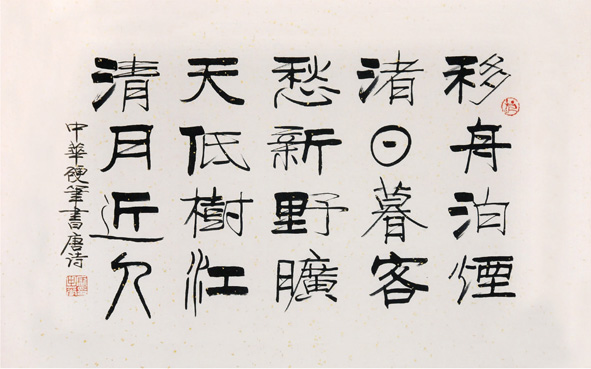 移舟泊煙
渚日暮客
愁新野曠
天低樹江
清月近人
中華硬筆書唐詩